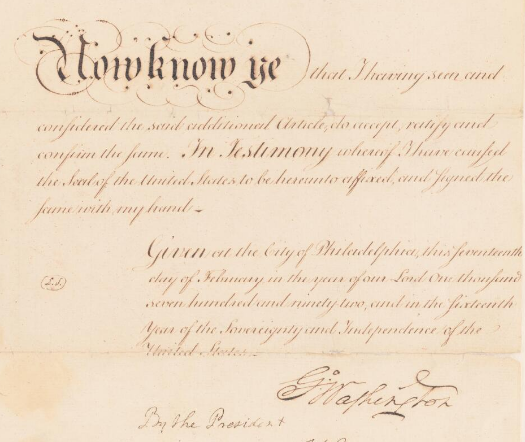 Now know ye that I having seen and
considered the said additional Article, do accept, ratify and
confirm the same. In Testimony whereof I have caused
the Seal of the United States to be hereunto affixed, and signed the
same with my hand -
Given at the City of Philadelphia, this seventeenth
day of February in the year of our Lord One thousand
L.S.
seven hundred and ninety two, and in the sixteenth
Year of the Sovereignty and Independence of the
United States.
G. Washington
By the President